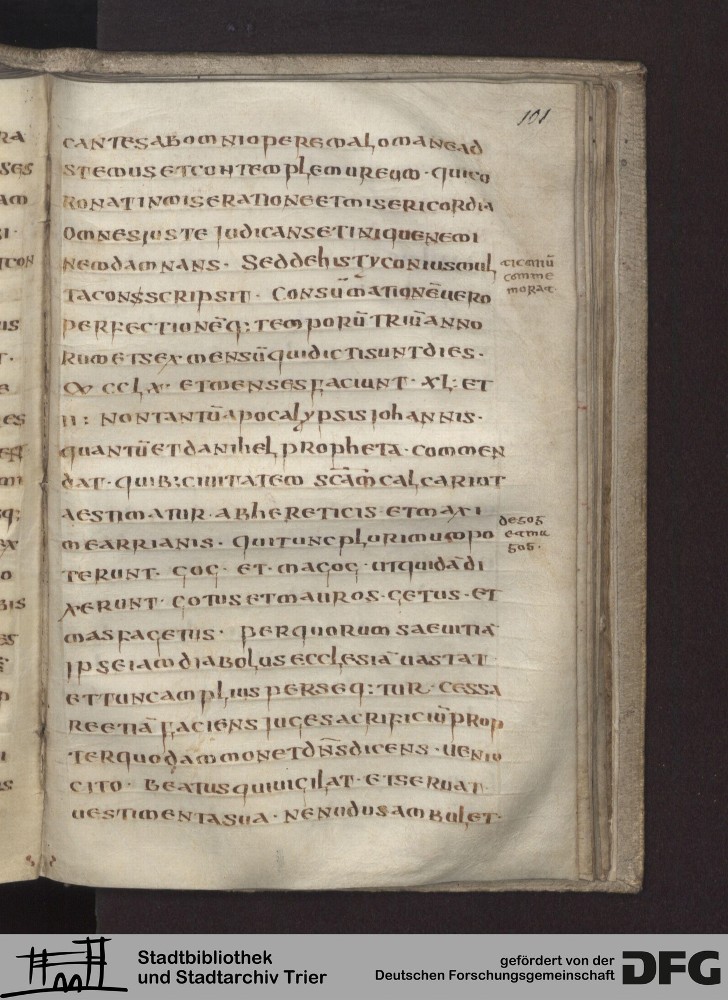 101
CANTES AB OMNI OPERE MALO MANE AD
STEMUS ET CONTEMPLEMUR EUM · QUI CO
RONAT IN MISERATIONE ET MISERICORDIA
OMNES JUSTE JUDICANS ET INIQUE NEMI
NEM DAMNANS · SED DE HIS TYCONIUS MUL
TA CONSSCRIPSIT · CONSŪMATIONĒ UERO
PERFECTIONĒQ; TEMPORŪ TRIŪ ANNO
RUM ET SEX MENSŪ QUI DICTI SUNT DIES ·
CCLX · ET MENSES FACIUNT · XL: ET
II : NON TANTŪ APOCALYPSIS JOHANNIS ·
QUANTŪ ET DANIHEL PROPHETA · COMMEN
DAT · QUIB; CIUITATEM SC̄AM̄ CALCARI UT
AESTIMATUR · AB HERETICIS · ET MAXI
ME ARRIANIS · QUI TUNC PLURIMUM PO
TERUNT · GOG · ET · MAGOG · UT QUIDĀ DI
XERUNT · GOTUS ET MAUROS · GETUS · ET
MASSAGETUS · PER QUORUM SAEUITIĀ
IPSE IAM DIABOLUS ECCLESIĀ UASTAT
ET TUNC AMPLIUS PERSEQ: TUR · CESSA
RE ETIĀ FACIENS JUGE SACRIFICIŪ PROP
TER QUOD AMMONET DN̄S DICENS · UENIO
CITO · BEATUS QUI UIGILAT · ET SERUAT ·
UESTIMENTA SUA · NE NUDUS AMBULET ·
TICONIŪ
COMME
MORAT
DE GOG
ET MA
GOG ·
Stadtbibliothek
und Stadtarchiv Trier
gefördert von der
Deutschen Forschungsgemeinschaft
DFG